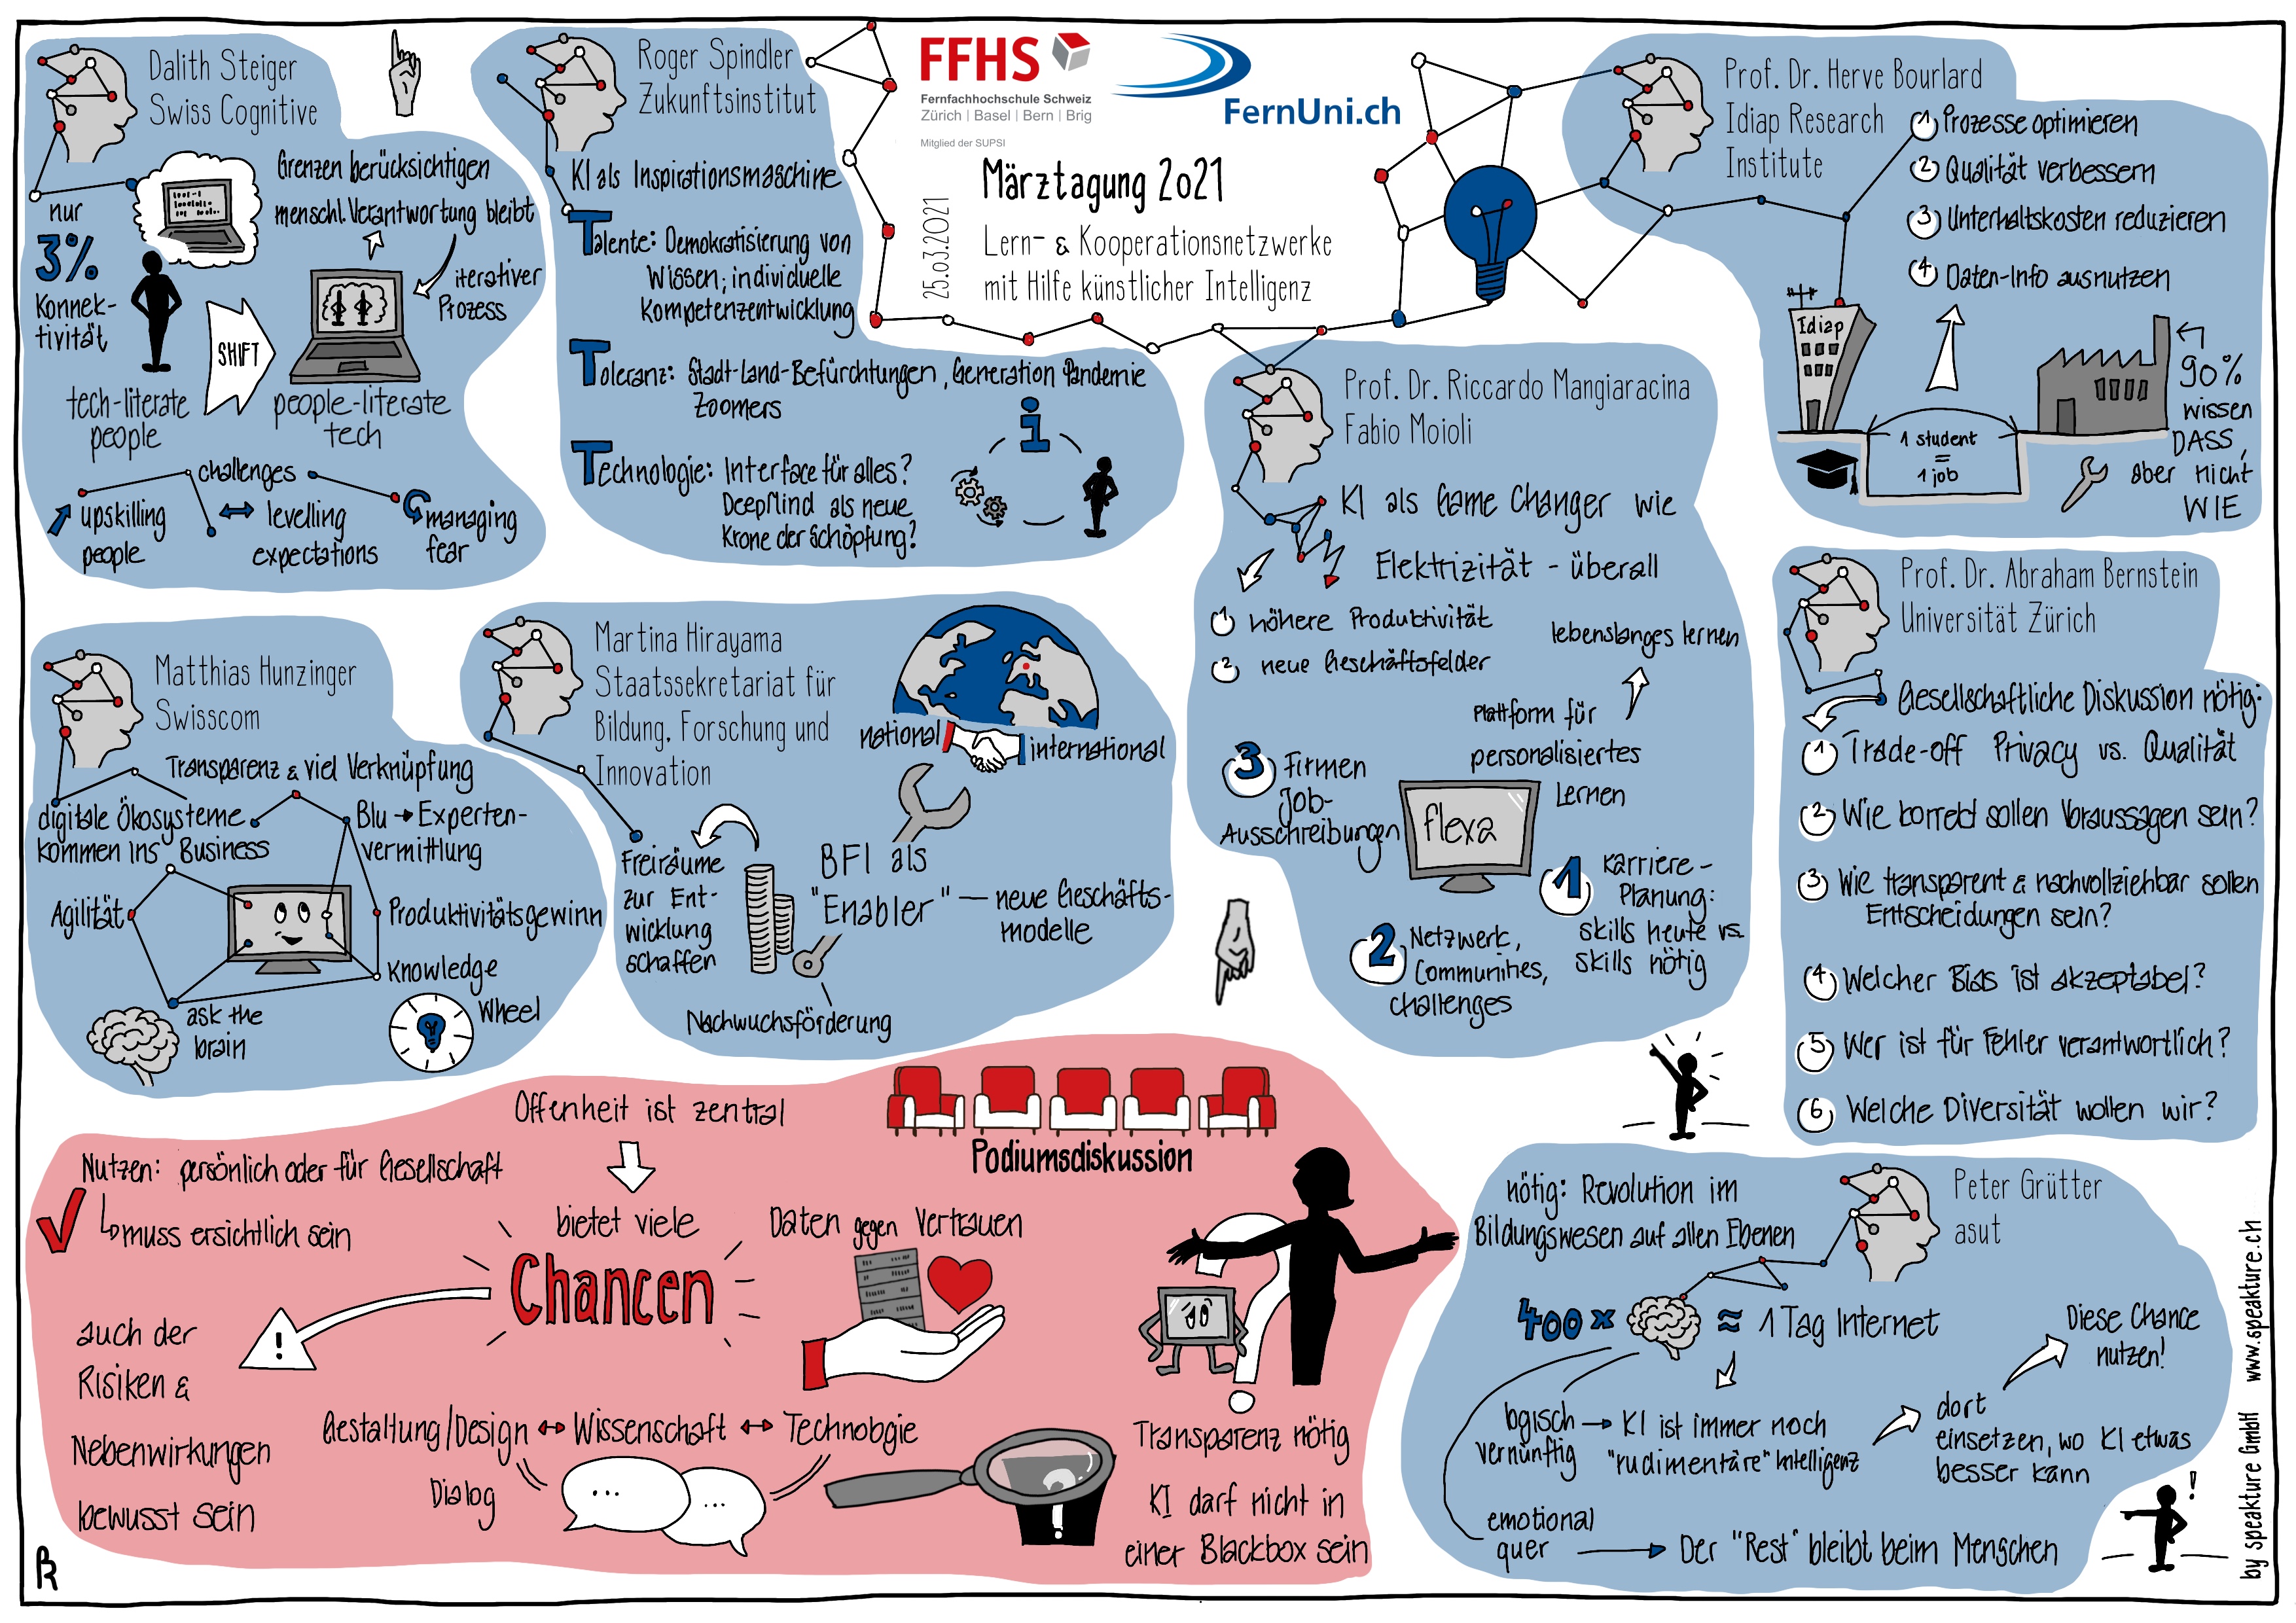 Dalith Steiger
Swiss Cognitive
nur
3%
Konnek-
tivität
Grenzen berücksichtigen
menschl. Verantwortung bleibt
iterativer
Prozess
SHIFT
tech-literate
people
people-literate
tech
challenges
upskilling
people
levelling
expectations
managing
fear
Roger Spindler
Zukunftsinstitut
KI als Inspirationsmaschine
Talente: Demokratisierung von
Wissen; individuelle
Kompetenzentwicklung
Toleranz: Stadt-Land-Befürchtungen, Generation Pandemie
Zoomers
Technologie: Interface für alles?
DeepMind als neue
Krone der Schöpfung?
i
FFHS
Fernfachhochschule Schweiz
Zürich | Basel | Bern | Brig
Mitglied der SUPSI
FernUni.ch
25.03.2021
Märztagung 2021
Lern- & Kooperationsnetzwerke
mit Hilfe künstlicher Intelligenz
Prof. Dr. Herve Bourlard
Idiap Research
Institute
1 Prozesse optimieren
2 Qualität verbessern
3 Unterhaltskosten reduzieren
4 Daten-Info ausnutzen
Idiap
1 student
=
1 job
90%
wissen
DASS,
aber nicht
WIE
Prof. Dr. Riccardo Mangiaracina
Fabio Moioli
KI als Game Changer wie
Elektrizität - überall
1 höhere Produktivität
2 neue Geschäftsfelder
lebenslanges lernen
Plattform für
personalisiertes
Lernen
flexa
1 Karriere-
Planung:
skills heute vs.
skills nötig
2 Netzwerk,
Communities,
challenges
3 Firmen
Job-
Ausschreibungen
Prof. Dr. Abraham Bernstein
Universität Zürich
Gesellschaftliche Diskussion nötig:
1 Trade-off Privacy vs. Qualität
2 Wie korrekt sollen Voraussagen sein?
3 Wie transparent & nachvollziehbar sollen
Entscheidungen sein?
4 Welcher Bias ist akzeptabel?
5 Wer ist für Fehler verantwortlich?
6 Welche Diversität wollen wir?
Matthias Hunzinger
Swisscom
Transparenz & viel Verknüpfung
digitale Ökosysteme
kommen ins Business
Blu → Experten-
vermittlung
Agilität
Produktivitätsgewinn
Knowledge
Wheel
ask the
brain
Martina Hirayama
Staatssekretariat für
Bildung, Forschung und
Innovation
national
international
Freiräume
zur Ent-
wicklung
schaffen
BFI als
"Enabler" — neue Geschäfts-
modelle
Nachwuchsförderung
Podiumsdiskussion
Offenheit ist zentral
Nutzen: persönlich oder für Gesellschaft
muss ersichtlich sein
bietet viele
Chancen
Daten gegen Vertrauen
!
auch der
Risiken &
Nebenwirkungen
bewusst sein
Gestaltung/Design ↔ Wissenschaft ↔ Technologie
Dialog
...
...
?
Transparenz nötig
KI darf nicht in
einer Blackbox sein
Peter Grütter
asut
nötig: Revolution im
Bildungswesen auf allen Ebenen
400 x ≈ 1 Tag Internet
logisch → KI ist immer noch
vernünftig "rudimentäre" Intelligenz
dort
einsetzen, wo KI etwas
besser kann
Diese Chance
nutzen!
emotional
quer → Der "Rest" bleibt beim Menschen
!
by speakture GmbH www.speakture.ch